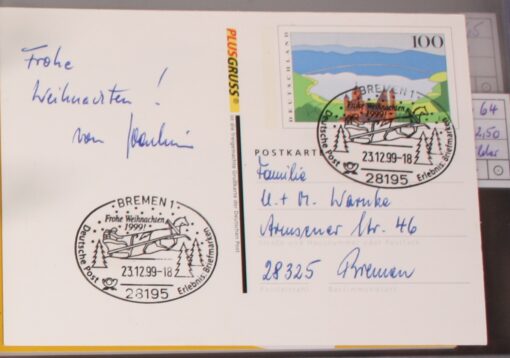 Frohe
Weihnachten!
von Joachim
PLUSGRUSS
ist ein freigemachte Grußkarte der Deutschen Post
DEUTSCHLAND
100
BREMEN 1
Frohe Weihnachten
1999!
23.12.99-18
Deutsche Post
Erlebnis: Briefmarken
28195
POSTKARTE
Familie
U. + M. Warnke
Armsener Str. 46
28325 Bremen
BREMEN 1
Frohe Weihnachten
1999!
23.12.99-18
Deutsche Post
Erlebnis: Briefmarken
28195
64
2,50